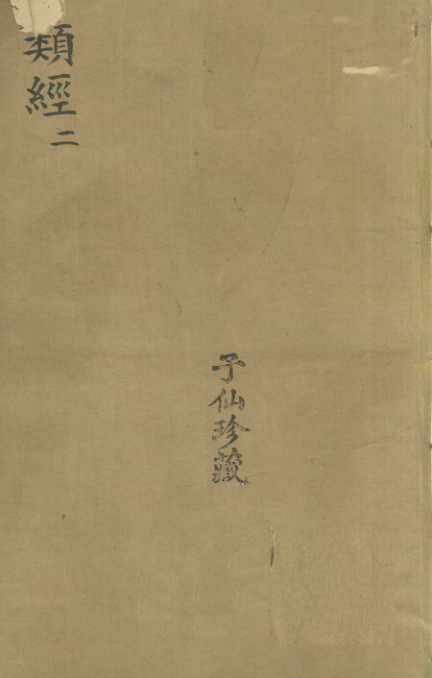 類經
二
子仙珍藏